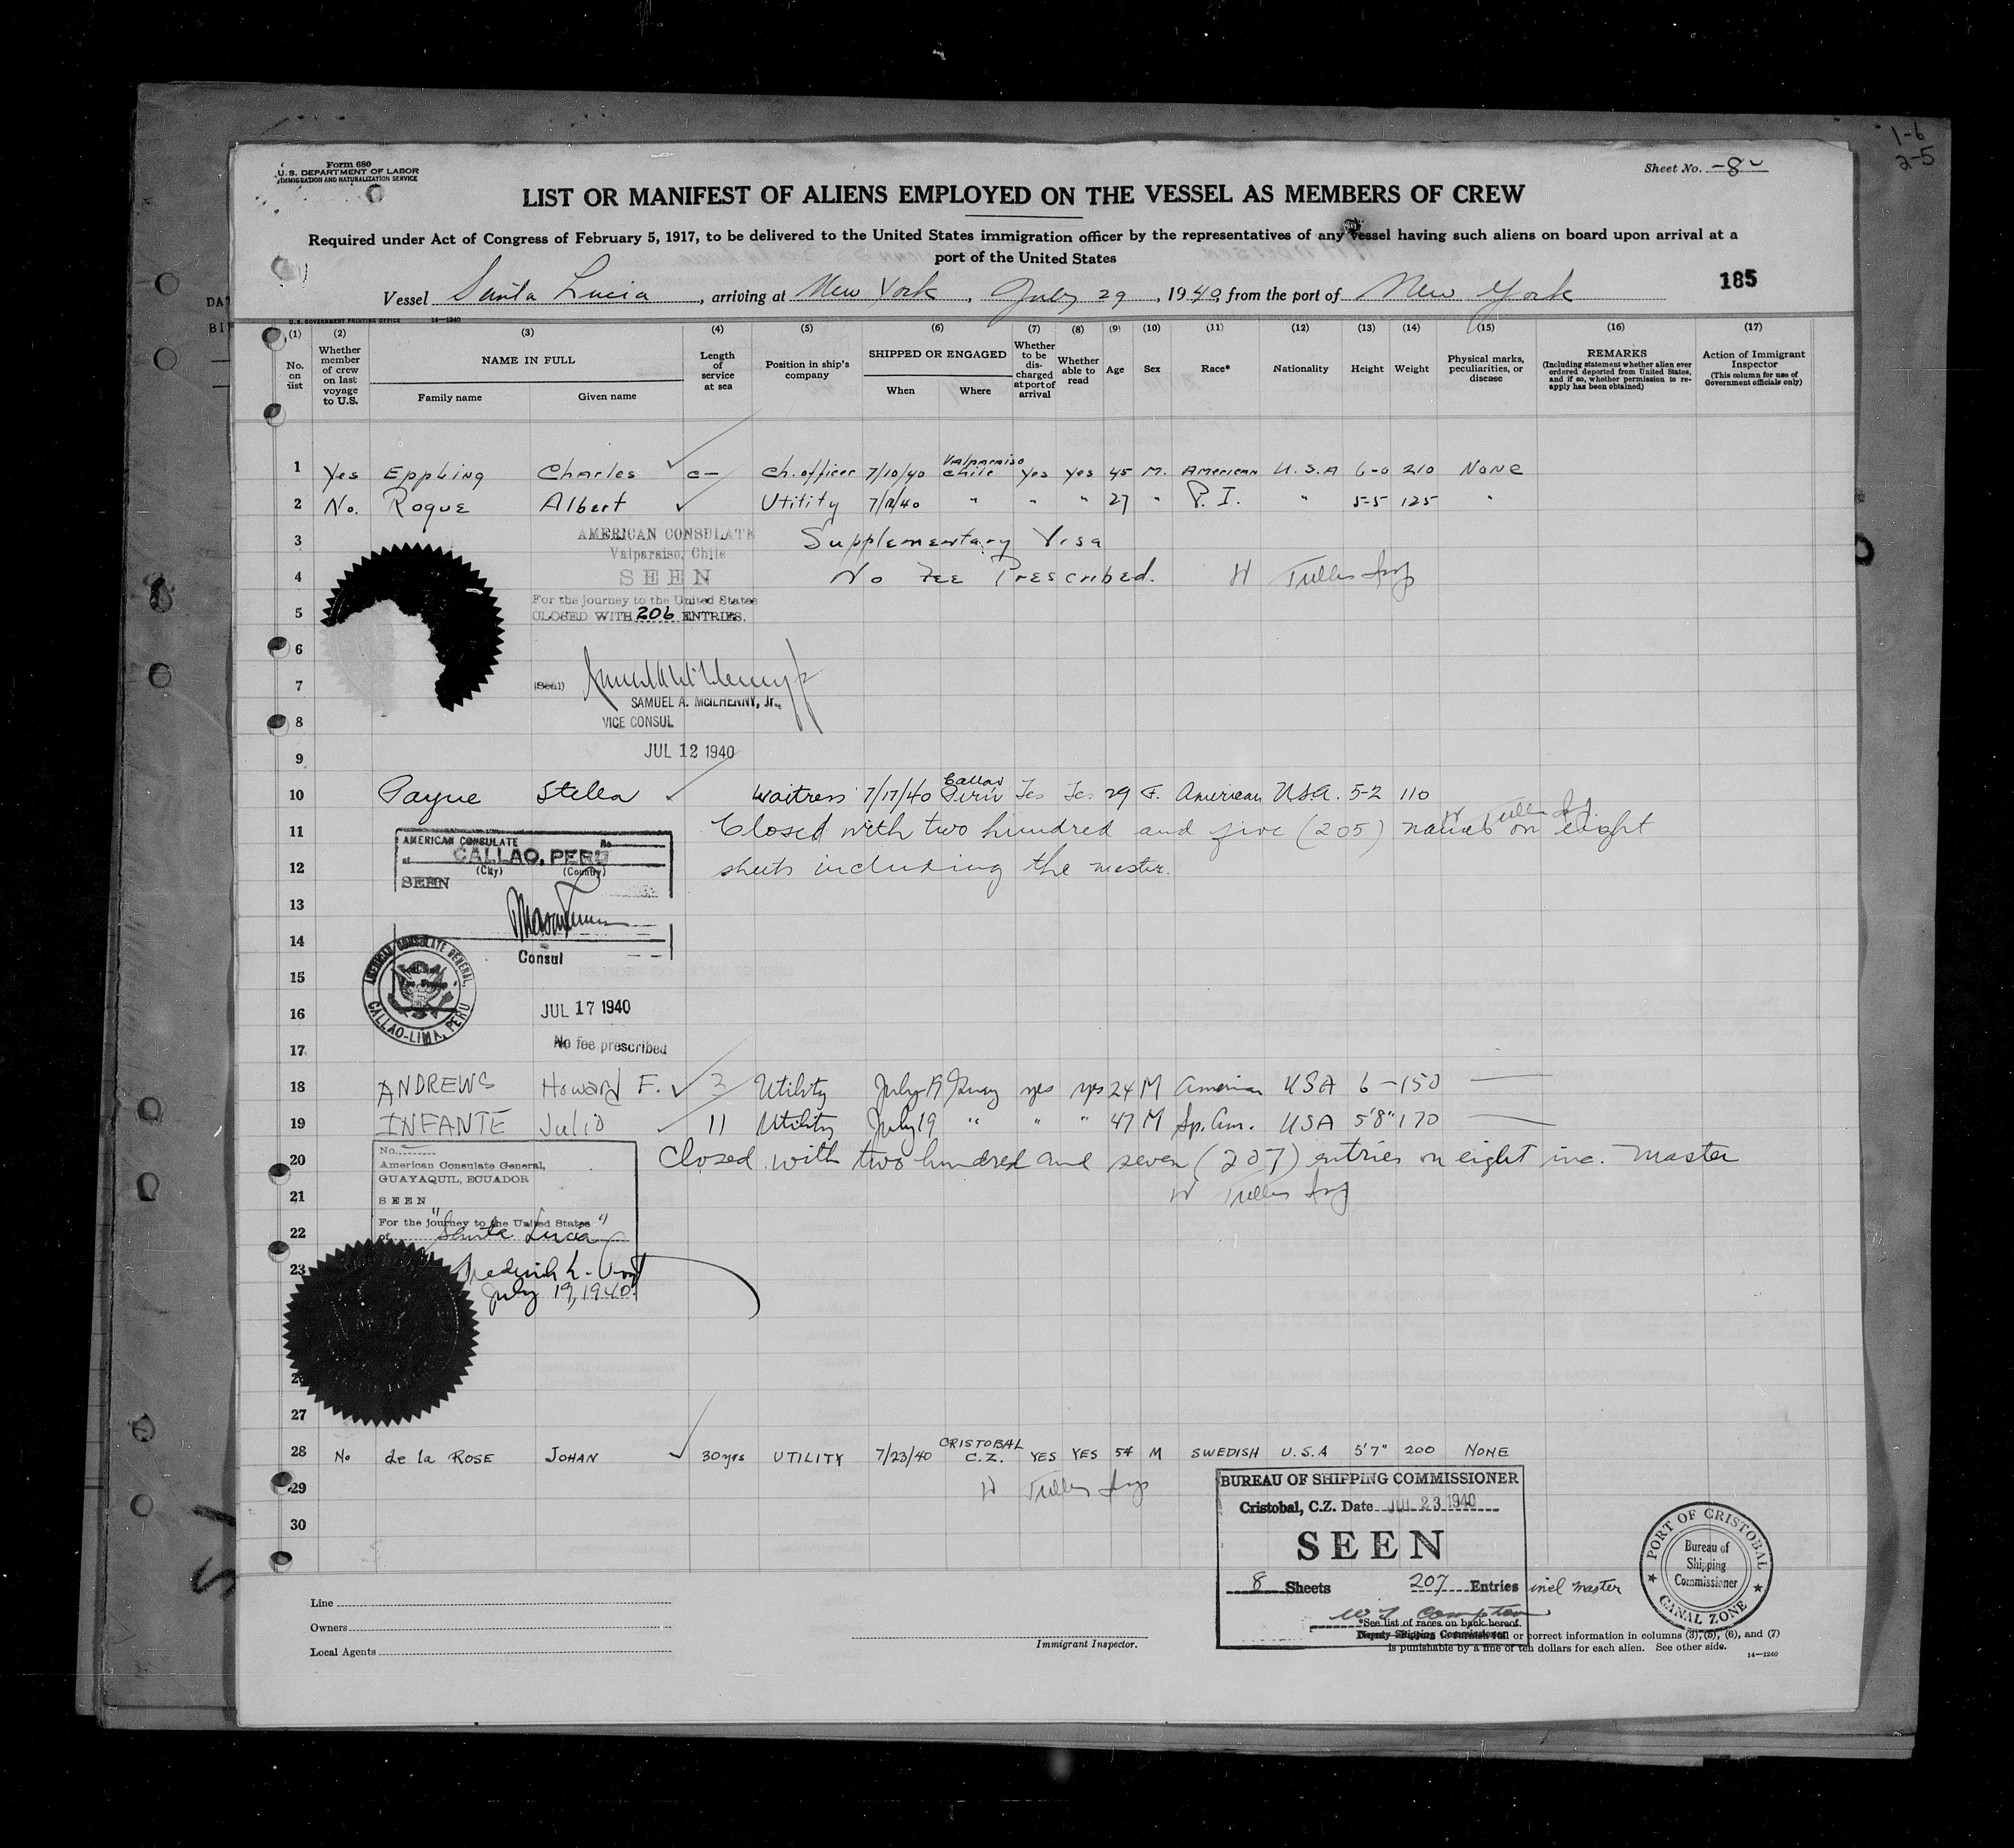 1-6
2-5
Form 680
U.S. DEPARTMENT OF LABOR
IMMIGRATION AND NATURALIZATION SERVICE
Sheet No. -8-
LIST OR MANIFEST OF ALIENS EMPLOYED ON THE VESSEL AS MEMBERS OF CREW
Required under Act of Congress of February 5, 1917, to be delivered to the United States immigration officer by the representatives of any vessel having such aliens on board upon arrival at a
port of the United States
185
Vessel Santa Lucia, arriving at New York, July 29, 1940, from the port of New York
U.S. GOVERNMENT PRINTING OFFICE 14-1240
(1) (2) (3) (4) (5) (6) (7) (8) (9) (10) (11) (12) (13) (14) (15) (16) (17)
No. on list
Whether member of crew on last voyage to U.S.
NAME IN FULL
Family name Given name
Length of service at sea
Position in ship's company
SHIPPED OR ENGAGED
When Where
Whether to be discharged at port of arrival
Whether able to read
Age Sex Race* Nationality Height Weight
Physical marks, peculiarities, or disease
REMARKS
(Including statement whether alien ever ordered deported from United States, and if so, whether permission to reapply has been obtained)
Action of Immigrant Inspector
(This column for use of Government officials only)
1 Yes Eppling Charles c- Ch. officer 7/10/40 Valparaiso Chile Yes Yes 45 M. American U.S.A 6-0 210 None
2 No. Roque Albert Utility 7/12/40 " " " 27 " P.I. " 5-5 125 "
3 AMERICAN CONSULATE Supplementary Visa
Valparaiso, Chile
4 SEEN No Fee Prescribed.
For the journey to the United States
5 CLOSED WITH 206 ENTRIES.
6
7 (Seal)
SAMUEL A. McILHENNY, Jr.
8 VICE CONSUL
JUL 12 1940
9
10 Payne Stella Waitress 7/17/40 Callao Peru Yes Yes 29 F. American U.S.A. 5-2 110
11 Closed with two hundred and five (205) names on eight
12 sheets including the master.
AMERICAN CONSULATE No
at CALLAO, PERU
(City) (Country)
SEEN
13
14
Consul
AMERICAN CONSULATE GENERAL, CALLAO-LIMA, PERU
15
16 JUL 17 1940
17 No fee prescribed
18 ANDREWS Howard F. 3 Utility July 19 Guay yes yes 24 M American USA 6- 150 —
19 INFANTE Julio 11 Utility July 19 " " " 47 M Sp. Am. USA 5'8" 170 —
20 Closed with two hundred and seven (207) entries on eight inc. Master
No.
American Consulate General,
GUAYAQUIL, ECUADOR
21 SEEN
For the journey to the United States
22 of "Santa Lucia"
23
July 19, 1940
27
28 No de la ROSE JOHAN 30 yrs UTILITY 7/23/40 CRISTOBAL C.Z. YES YES 54 M SWEDISH U.S.A 5'7" 200 NONE
29
30
BUREAU OF SHIPPING COMMISSIONER
Cristobal, C.Z. Date JUL 23 1940
SEEN
8 Sheets 207 Entries incl master
W J Compton
Deputy Shipping Commissioner
PORT OF CRISTOBAL
Bureau of
Shipping
Commissioner
CANAL ZONE
Line
Owners
Local Agents
Immigrant Inspector.
*See list of races on back hereof.
or correct information in columns (3), (5), (6), and (7)
is punishable by a fine of ten dollars for each alien. See other side.
14-1240